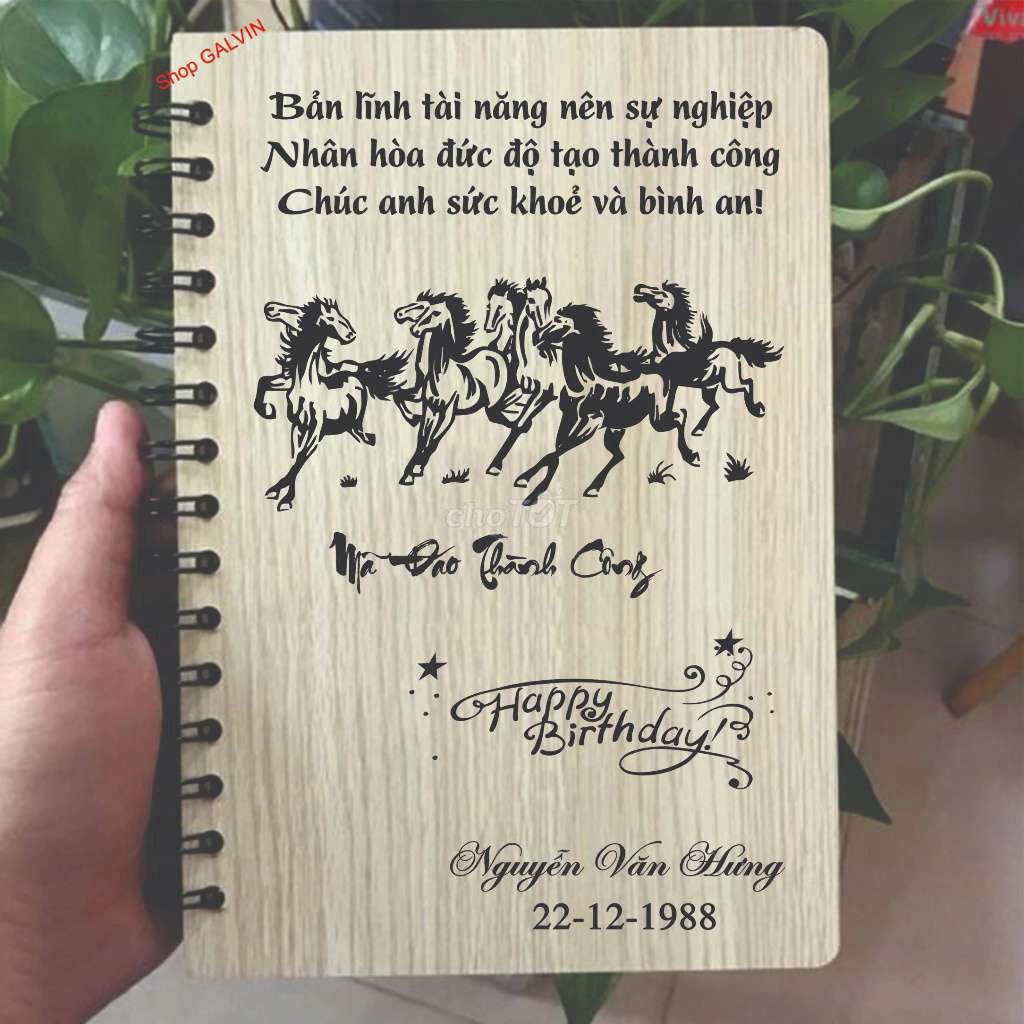 Shop GALVIN
Vivi
Bản lĩnh tài năng nên sự nghiệp
Nhân hòa đức độ tạo thành công
Chúc anh sức khoẻ và bình an!
chợTỐT
Mã Đáo Thành Công
Happy
Birthday!
Nguyễn Văn Hưng
22-12-1988